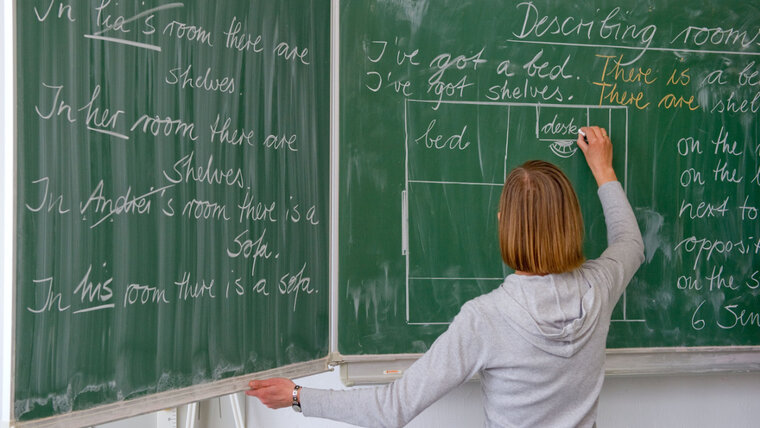 In Pia's room there are
Shelves.
In her room there are
Shelves.
In Andrei's room there is a
Sofa.
In his room there is a sofa.
Describing rooms
I've got a bed. There is a be
I've got shelves. There are shel
bed
desk
on the
on the
next to
opposit
on the
6 Sen